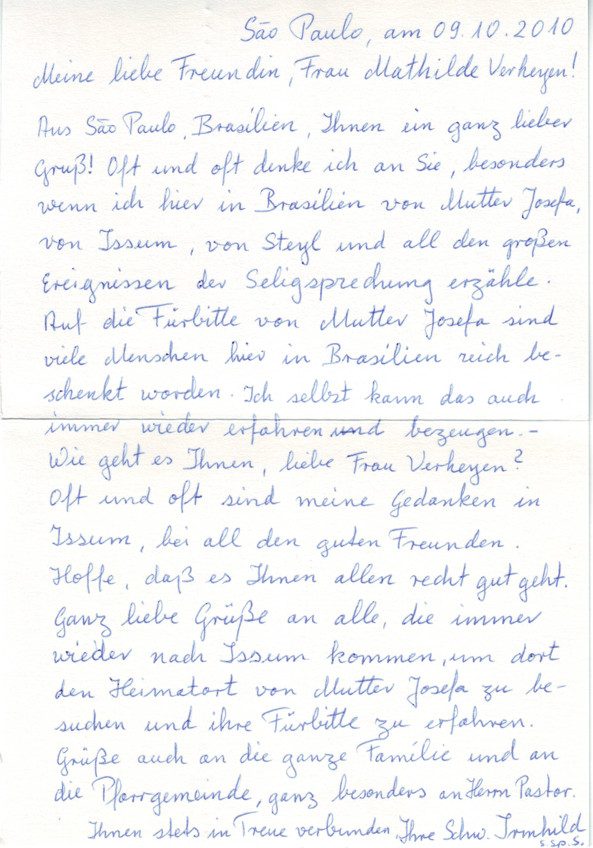 São Paulo, am 09.10.2010
Meine liebe Freundin, Frau Mathilde Verheyen!
Aus São Paulo, Brasilien, Ihnen ein ganz lieber
Gruß! Oft und oft denke ich an Sie, besonders
wenn ich hier in Brasilien von Mutter Josefa,
von Issum, von Steyl und all den großen
Ereignissen der Seligsprechung erzähle.
Auf die Fürbitte von Mutter Josefa sind
viele Menschen hier in Brasilien reich be-
schenkt worden. Ich selbst kann das auch
immer wieder erfahren und bezeugen.-
Wie geht es Ihnen, liebe Frau Verheyen?
Oft und oft sind meine Gedanken in
Issum, bei all den guten Freunden.
Hoffe, daß es Ihnen allen recht gut geht.
Ganz liebe Grüße an alle, die immer
wieder nach Issum kommen, um dort
den Heimatort von Mutter Josefa zu be-
suchen und ihre Fürbitte zu erfahren.
Grüße auch an die ganze Familie und an
die Pfarrgemeinde, ganz besonders an Herrn Pastor.
Ihnen stets in Treue verbunden, Ihre Schw. Irmhild
s.Sp.S.